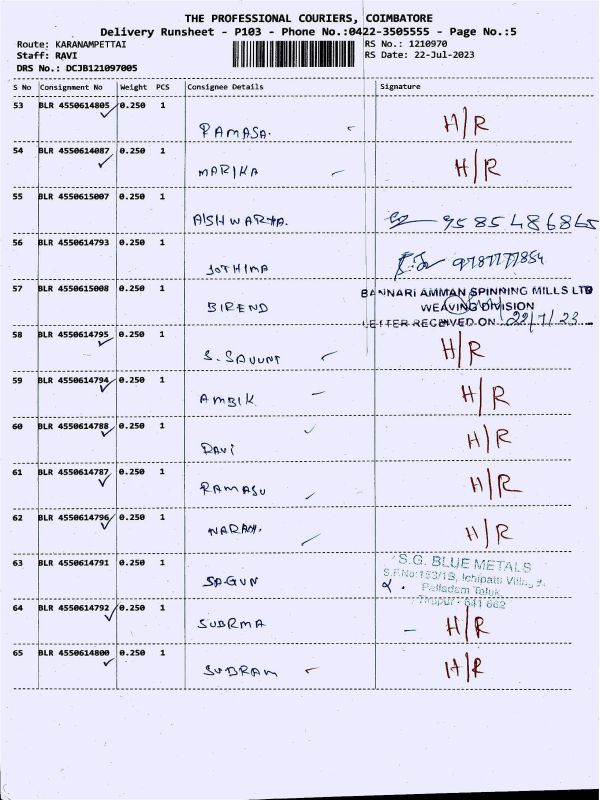 THE PROFESSIONAL COURIERS, COIMBATORE
Delivery Runsheet - P103 - Phone No.:0422-3505555 - Page No.:5
Route: KARANAMPETTAI RS No.: 1210970
Staff: RAVI RS Date: 22-Jul-2023
DRS No.: DCJB121097005
S No Consignment No Weight PCS Consignee Details Signature
53 BLR 4550614805 0.250 1
RAMASA. H/R
54 BLR 4550614087 0.250 1
MARIKA H/R
55 BLR 4550615007 0.250 1
AISHWARYA. 9585486865
56 BLR 4550614793 0.250 1
JOTHIMA 9787777854
57 BLR 4550615008 0.250 1
BANNARI AMMAN SPINNING MILLS LTD
BIREND WEAVING DIVISION
LETTER RECEIVED ON 22/7/23
58 BLR 4550614795 0.250 1
S. SAVUNT H/R
59 BLR 4550614794 0.250 1
AMBIK H/R
60 BLR 4550614788 0.250 1
RAVI H/R
61 BLR 4550614787 0.250 1
RAMASU H/R
62 BLR 4550614796 0.250 1
NARAY. H/R
63 BLR 4550614791 0.250 1
S.G. BLUE METALS
S.F.No:153/1B, Ichipatti
SAGUN Palladam Taluk,
Tirupur - 641 662
64 BLR 4550614792 0.250 1
SUBRMA H/R
65 BLR 4550614800 0.250 1
SUBRAM H/R